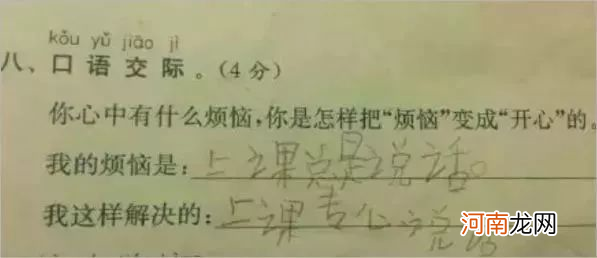 kǒu yǔ jiāo jì
八、口语交际。(4分)
你心中有什么烦恼,你是怎样把“烦恼”变成“开心”的。
我的烦恼是:上课总是说话。
我这样解决的:上课专心说话
河南龙网